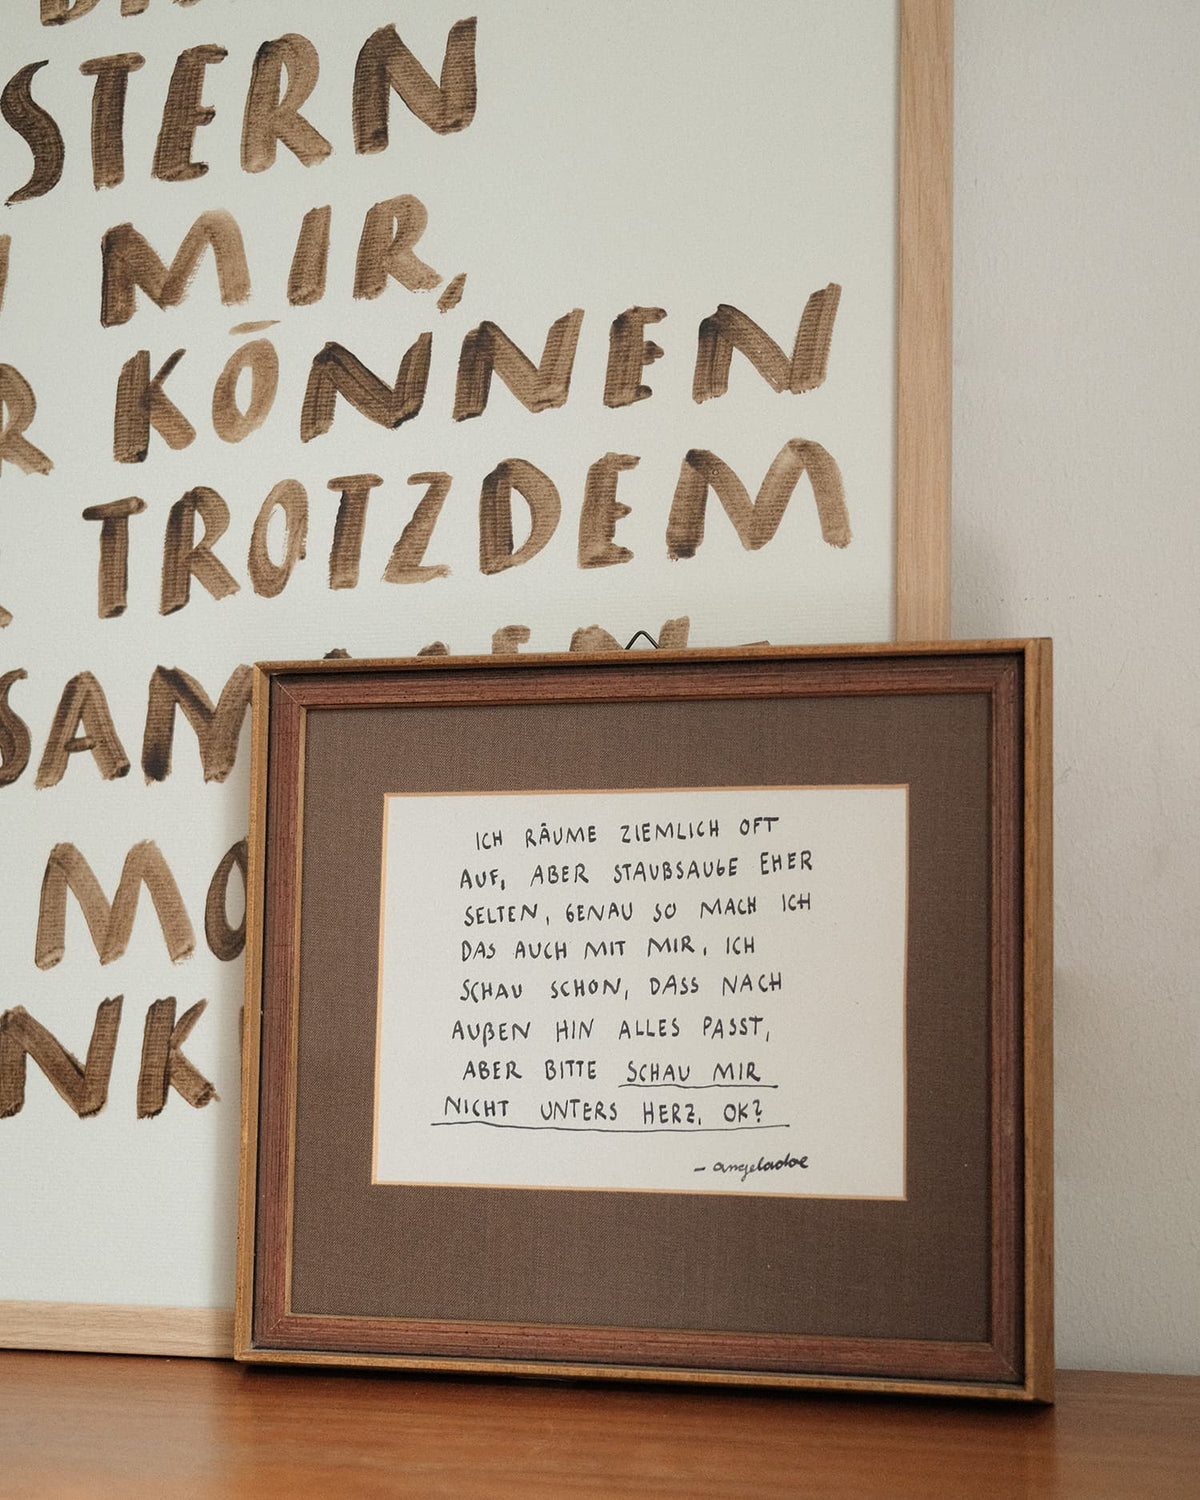 STERN
MIR,
KÖNNEN
TROTZDEM
ICH RÄUME ZIEMLICH OFT
AUF, ABER STAUBSAUGE EHER
SELTEN, GENAU SO MACH ICH
DAS AUCH MIT MIR, ICH
SCHAU SCHON, DASS NACH
AUßEN HIN ALLES PASST,
ABER BITTE SCHAU MIR
NICHT UNTERS HERZ, OK?
- angeladoe